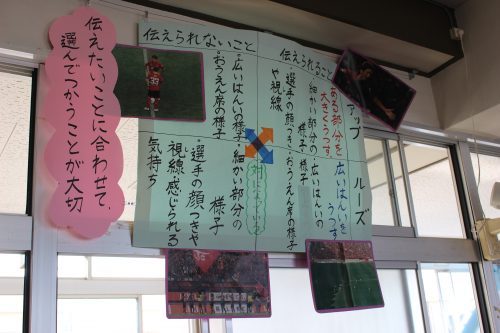 アップ
ルーズ
ある部分を
大きくうつす
広いはんいを
うつす
伝えられること
・細かい部分の
様子
・選手の顔つき
や視線
・広いはんいの
様子
・おうえん席の様子
伝えられないこと
・広いはんいの様子
・おうえん席の様子
・細かい部分の
様子
・選手の顔つきや
視線・感じられる
気持ち
伝えたいことに合わせて、
選んでつかうことが大切